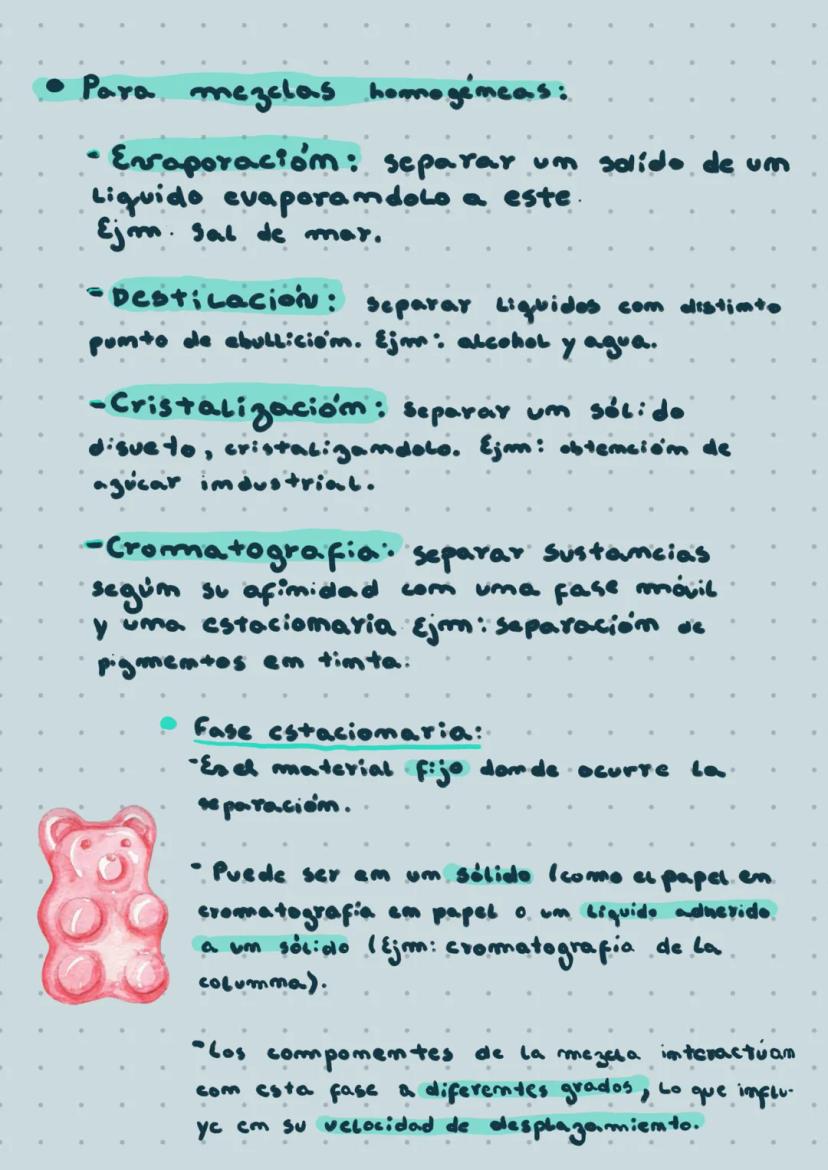 • Para mezclas homogéneas:
- Evaporación: separar un solído de un
líquido evaporandolo a este.
Ejm. Sal de mar.
- Destilación: separar líquidos con distinto
punto de ebullición. Ejm: alcohol y agua.
- Cristalización: separar un sólido
disueto, cristalizandolo. Ejm: obtención de
azúcar industrial.
- Cromatografia: separar sustancias
según su afinidad con una fase móvil
y una estacionaria Ejm: separación de
pigmentos en tinta.
• Fase estacionaria:
- Es el material fijo donde ocurre la
separación.
- Puede ser en un sólido (como el papel en
cromatografía en papel o un líquido adherido
a un sólido (Ejm: cromatografía de la
columna).
- Los componentes de la mezcla interactúan
con esta fase a diferentes grados, lo que influ-
ye en su velocidad de desplazamiento.